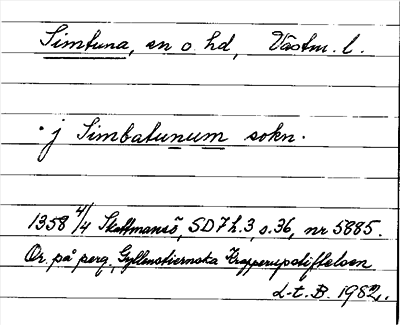 Simtuna, sn o. hd, Västm. l.
j Simbatunum sokn.
1358 4/4 Skattmansö, SD7 h.3, s.36, nr 5885.
Or. på perg., Gyllenstiernska Krapperupstiftelsen
L-t. B. 1982.